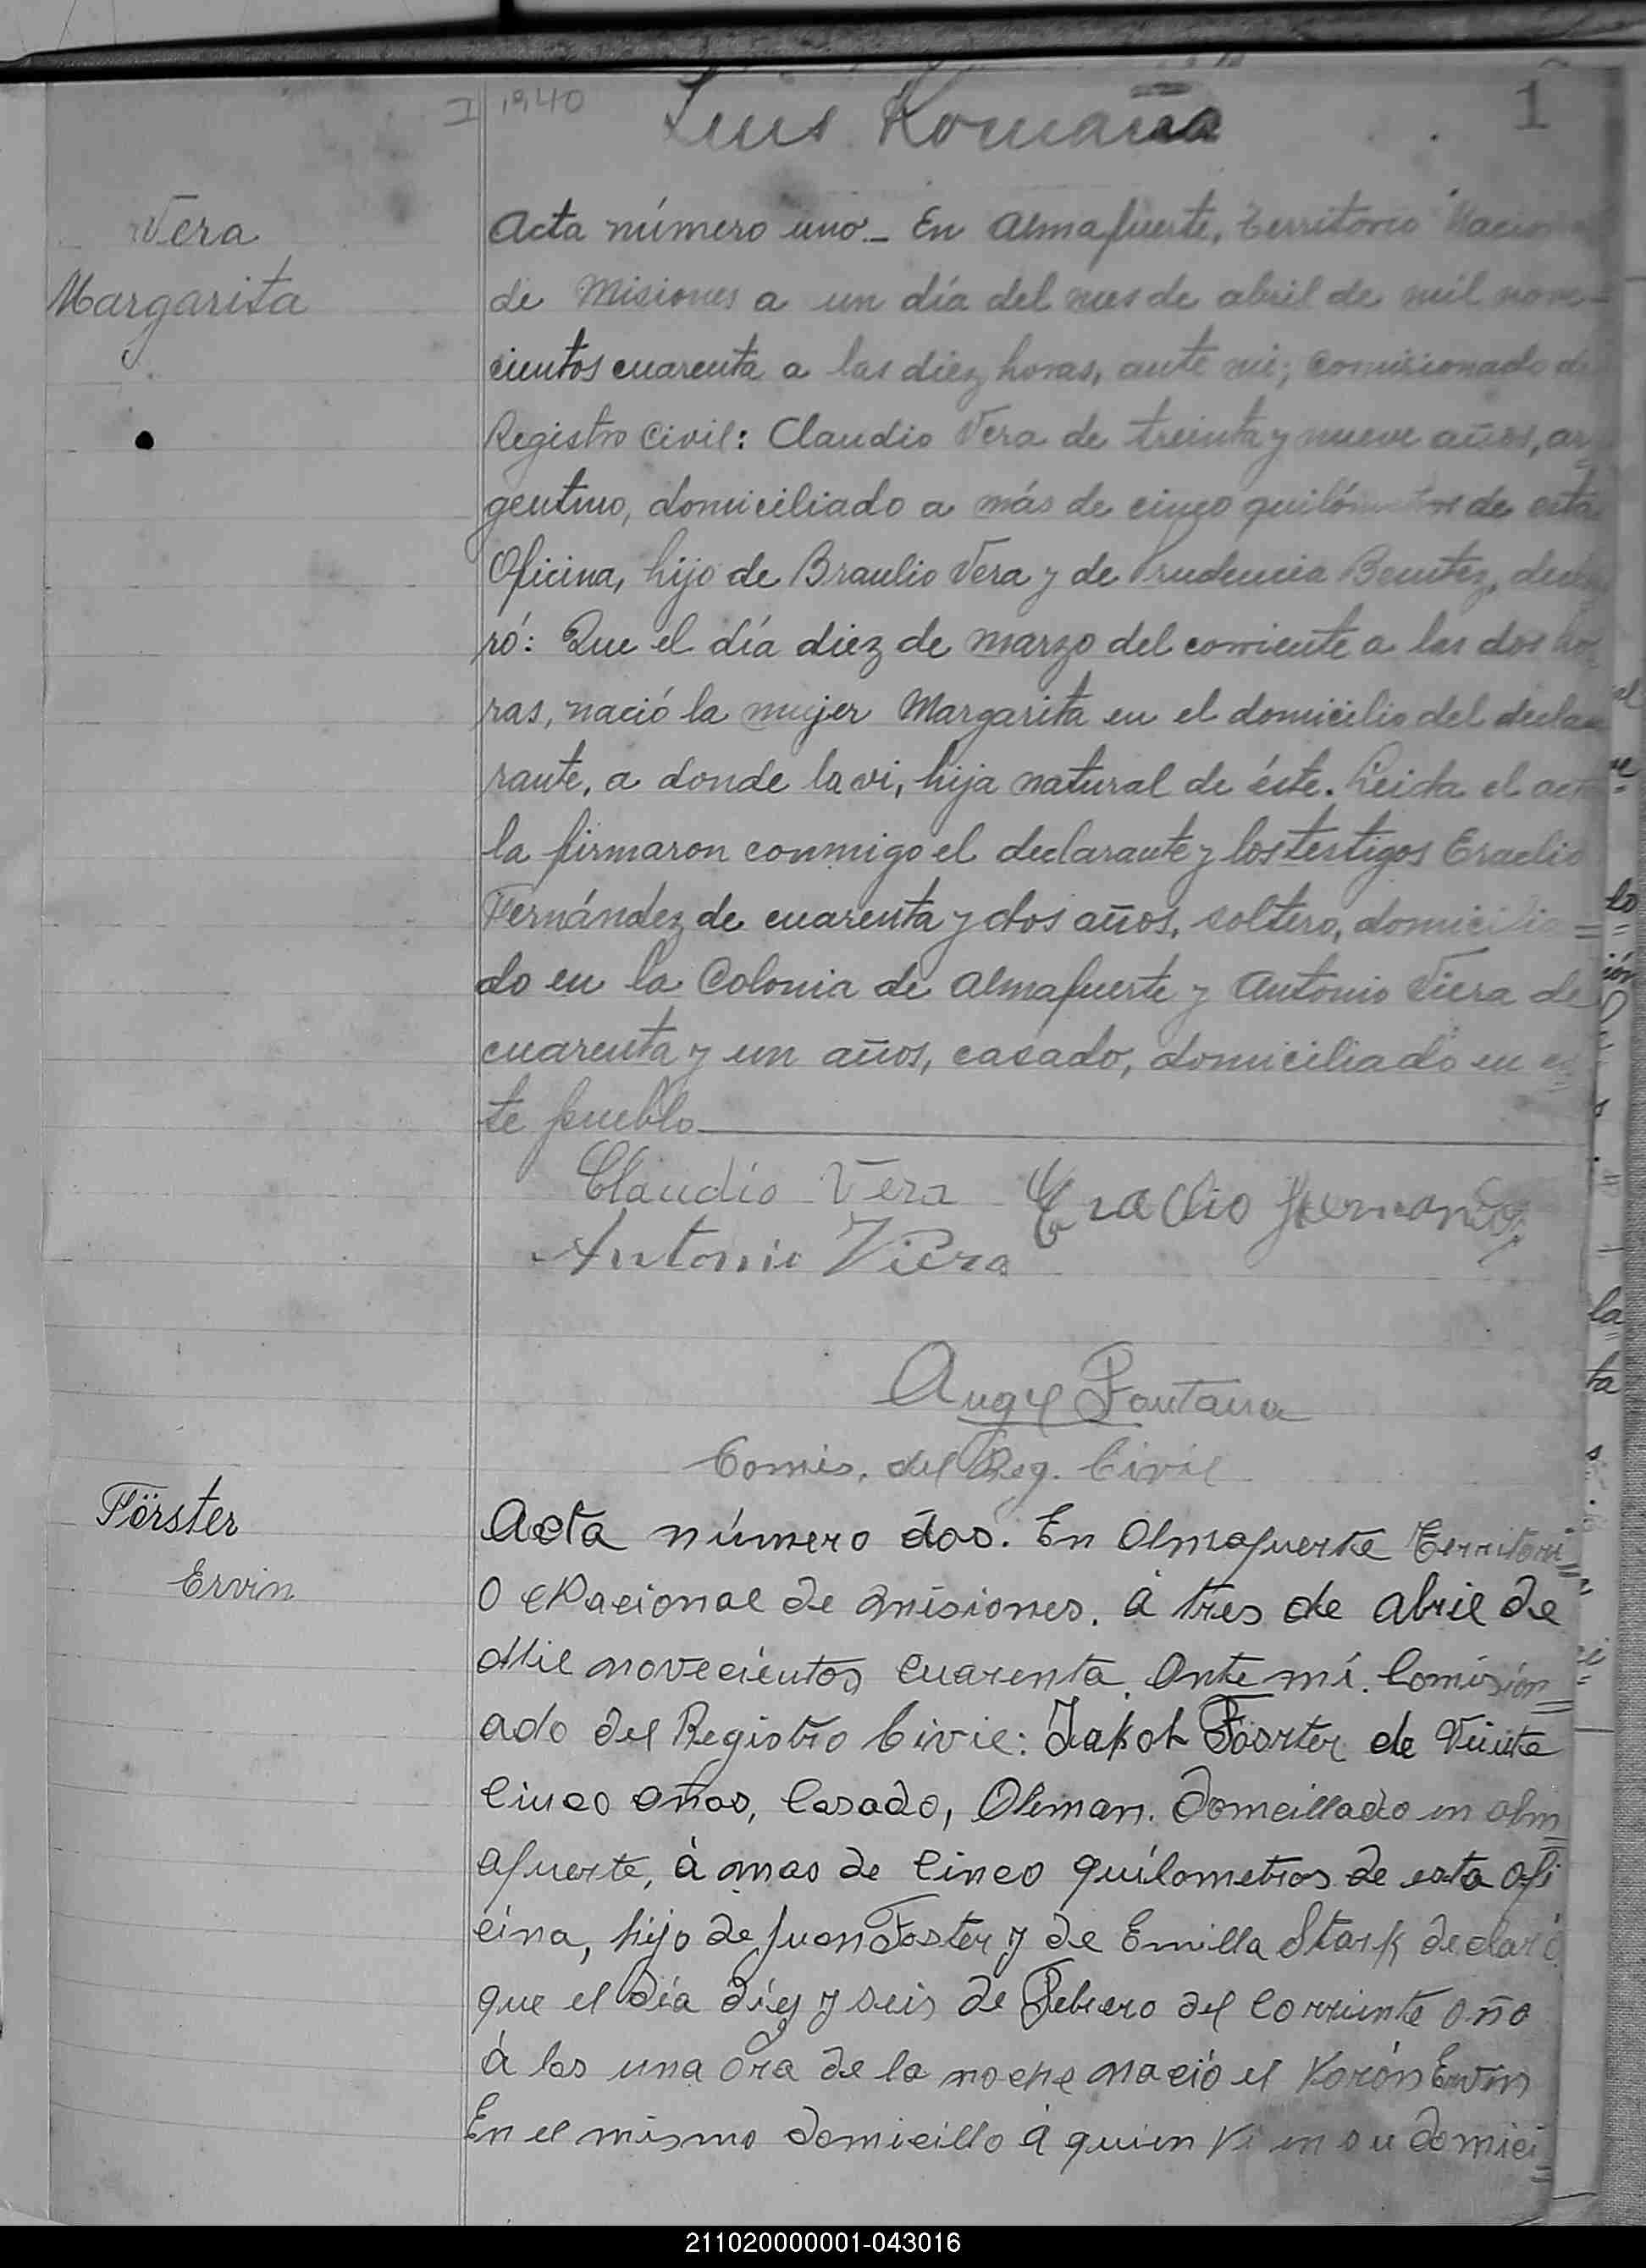 I 1940
Luis Romaña
1
Vera
Margarita
Acta número uno_ En Almafuerte, Territorio Nacion
de Misiones a un día del mes de abril de mil nove-
cientos cuarenta a las diez horas, ante mi; comisionado de
Registro Civil: Claudio Vera de treinta y nueve años, ar=
gentino, domiciliado a más de cinco quilómetros de esta
Oficina, hijo de Braulio Vera y de Prudencia Benitez, decla
ró: Que el día diez de marzo del corriente a las dos ho=
ras, nació la mujer Margarita en el domicilio del decla
rante, a donde la vi, hija natural de éste. Leida el acta
la firmaron conmigo el declarante y los testigos Eraclio
Fernández de cuarenta y dos años, soltero, domicilia=
do en la Colonia de Almafuerte y Antonio Viera de
cuarenta y un años, casado, domiciliado en es=
te pueblo
Claudio Vera Eraclio Fernandez
Antonio Viera
Angel Fontana
Comis. del Reg. Civil
Förster
Ervin
Acta número dos. En Almafuerte Territori=
o Nacional de Misiones. á tres de abril de
Mil novecientos cuarenta. Ante mí. Comisión=
ado del Registro Civil: Jakob Föorter de Veinte
Cinco años, Casado, Aleman. Domcillado en alm=
afuerte, á mas de Cinco quílometros de esta ofi
cina, hijo de Juan Foster y de Emilla Stark declaró
que el día díez y seis de Febrero del Corriente año
á las una ora de la noche nació el Varón Ervin
En el mismo domicillo á quien Vi en su domici=
211020000001-043016